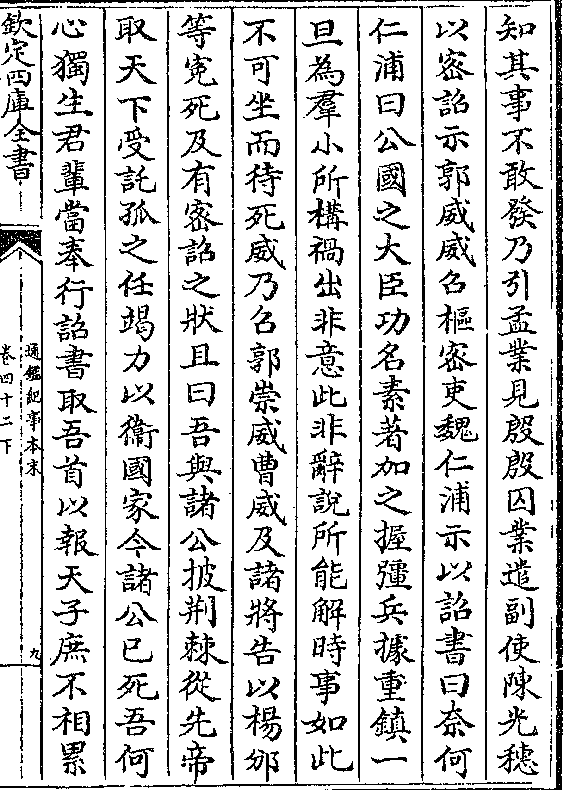 知其事不敢發乃引孟業見殷殷囚業遣副使陳光穗
以密詔示郭威威召樞密吏魏仁浦示以詔書曰奈何
仁浦曰公國之大臣功名素著加之握彊兵據重鎮一
旦為羣小所構禍出非意此非辭說所能解時事如此
不可坐而待死威乃召郭崇威曹威及諸將告以楊邠
等寃死及有密詔之狀且曰吾與諸公披荆棘從先帝
取天下受託孤之任竭力以衞國家今諸公已死吾何
心獨生君輩當奉行詔書取吾首以報天子庶不相累
欽定四庫全書
通鑑紀事本末
卷四十二下
九